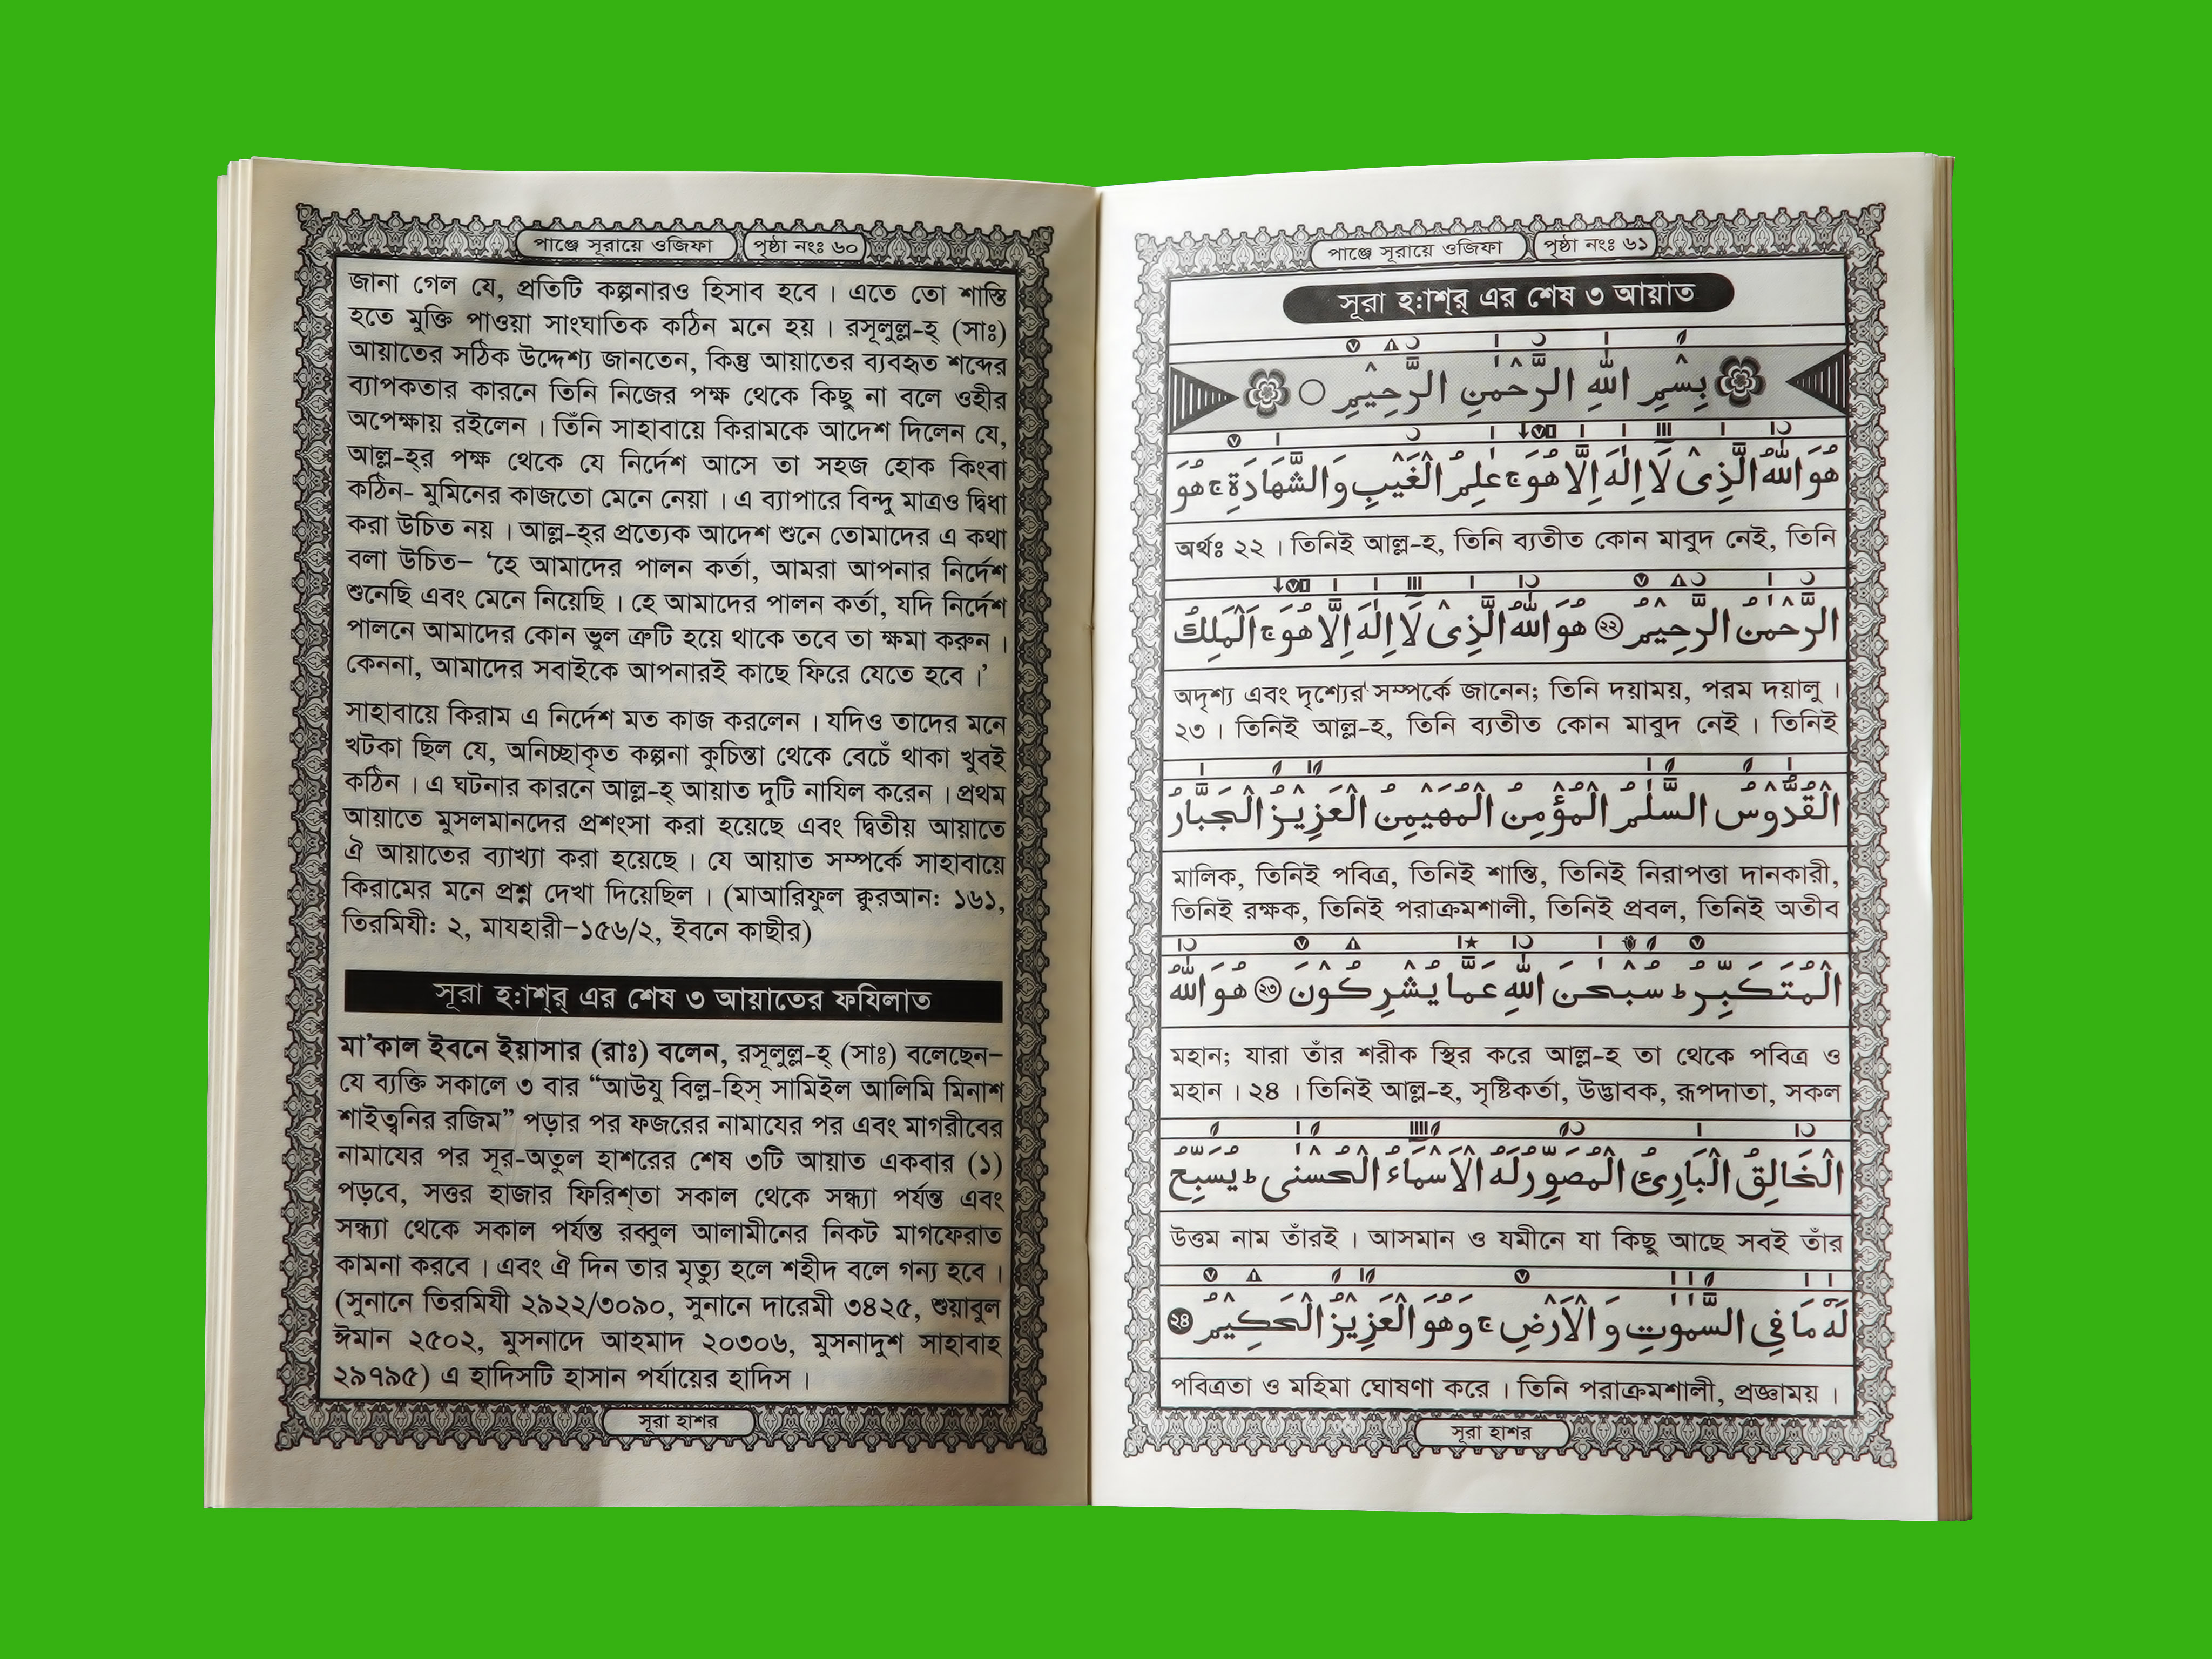 পাঞ্জে সূরায়ে ওজিফা পৃষ্ঠা নংঃ ৬০
জানা গেল যে, প্রতিটি কল্পনারও হিসাব হবে । এতে তো শাস্তি
হতে মুক্তি পাওয়া সাংঘাতিক কঠিন মনে হয় । রসূলুল্ল-হ্ (সাঃ)
আয়াতের সঠিক উদ্দেশ্য জানতেন, কিন্তু আয়াতের ব্যবহৃত শব্দের
ব্যাপকতার কারনে তিনি নিজের পক্ষ থেকে কিছু না বলে ওহীর
অপেক্ষায় রইলেন । তিঁনি সাহাবায়ে কিরামকে আদেশ দিলেন যে,
আল্ল-হ্‌র পক্ষ থেকে যে নির্দেশ আসে তা সহজ হোক কিংবা
কঠিন- মুমিনের কাজতো মেনে নেয়া । এ ব্যাপারে বিন্দু মাত্রও দ্বিধা
করা উচিত নয় । আল্ল-হ্‌র প্রত্যেক আদেশ শুনে তোমাদের এ কথা
বলা উচিত– ‘হে আমাদের পালন কর্তা, আমরা আপনার নির্দেশ
শুনেছি এবং মেনে নিয়েছি । হে আমাদের পালন কর্তা, যদি নির্দেশ
পালনে আমাদের কোন ভুল ত্রুটি হয়ে থাকে তবে তা ক্ষমা করুন ।
কেননা, আমাদের সবাইকে আপনারই কাছে ফিরে যেতে হবে ।’
সাহাবায়ে কিরাম এ নির্দেশ মত কাজ করলেন । যদিও তাদের মনে
খটকা ছিল যে, অনিচ্ছাকৃত কল্পনা কুচিন্তা থেকে বেচেঁ থাকা খুবই
কঠিন । এ ঘটনার কারনে আল্ল-হ্ আয়াত দুটি নাযিল করেন । প্রথম
আয়াতে মুসলমানদের প্রশংসা করা হয়েছে এবং দ্বিতীয় আয়াতে
ঐ আয়াতের ব্যাখ্যা করা হয়েছে । যে আয়াত সম্পর্কে সাহাবায়ে
কিরামের মনে প্রশ্ন দেখা দিয়েছিল । (মাআরিফুল ক্বুরআন: ১৬১,
তিরমিযী: ২, মাযহারী–১৫৬/২, ইবনে কাছীর)
সূরা হ:াশ্‌র্ এর শেষ ৩ আয়াতের ফযিলাত
মা’কাল ইবনে ইয়াসার (রাঃ) বলেন, রসূলুল্ল-হ্ (সাঃ) বলেছেন–
যে ব্যক্তি সকালে ৩ বার “আউযু বিল্ল-হিস্ সামিইল আলিমি মিনাশ
শাইত্বনির রজিম” পড়ার পর ফজরের নামাযের পর এবং মাগরীবের
নামাযের পর সূর-অতুল হাশরের শেষ ৩টি আয়াত একবার (১)
পড়বে, সত্তর হাজার ফিরিশ্‌তা সকাল থেকে সন্ধ্যা পর্যন্ত এবং
সন্ধ্যা থেকে সকাল পর্যন্ত রব্বুল আলামীনের নিকট মাগফেরাত
কামনা করবে । এবং ঐ দিন তার মৃত্যু হলে শহীদ বলে গন্য হবে ।
(সুনানে তিরমিযী ২৯২২/৩০৯০, সুনানে দারেমী ৩৪২৫, শুয়াবুল
ঈমান ২৫০২, মুসনাদে আহমাদ ২০৩০৬, মুসনাদুশ সাহাবাহ
২৯৭৯৫) এ হাদিসটি হাসান পর্যায়ের হাদিস ।
সূরা হাশর
পাঞ্জে সূরায়ে ওজিফা পৃষ্ঠা নংঃ ৬১
সূরা হ:াশ্‌র্ এর শেষ ৩ আয়াত
بِسْمِ اللّٰهِ الرَّحْمٰنِ الرَّحِيْمِ
هُوَ اللّٰهُ الَّذِىْ لَا اِلٰهَ اِلَّا هُوَ ۚ عٰلِمُ الْغَيْبِ وَالشَّهَادَةِ ۚ هُوَ
অর্থঃ ২২ । তিনিই আল্ল-হ, তিনি ব্যতীত কোন মাবুদ নেই, তিনি
الرَّحْمٰنُ الرَّحِيْمُ ২২ هُوَ اللّٰهُ الَّذِىْ لَا اِلٰهَ اِلَّا هُوَ ۚ اَلْمَلِكُ
অদৃশ্য এবং দৃশ্যের সম্পর্কে জানেন; তিনি দয়াময়, পরম দয়ালু ।
২৩ । তিনিই আল্ল-হ, তিনি ব্যতীত কোন মাবুদ নেই । তিনিই
الْقُدُّوْسُ السَّلٰمُ الْمُؤْمِنُ الْمُهَيْمِنُ الْعَزِيْزُ الْجَبَّارُ
মালিক, তিনিই পবিত্র, তিনিই শান্তি, তিনিই নিরাপত্তা দানকারী,
তিনিই রক্ষক, তিনিই পরাক্রমশালী, তিনিই প্রবল, তিনিই অতীব
الْمُتَكَبِّرُ ؕ سُبْحٰنَ اللّٰهِ عَمَّا يُشْرِكُوْنَ ২৩ هُوَ اللّٰهُ
মহান; যারা তাঁর শরীক স্থির করে আল্ল-হ তা থেকে পবিত্র ও
মহান । ২৪ । তিনিই আল্ল-হ, সৃষ্টিকর্তা, উদ্ভাবক, রূপদাতা, সকল
الْخَالِقُ الْبَارِئُ الْمُصَوِّرُ لَهُ الْاَسْمَآءُ الْحُسْنٰى ؕ يُسَبِّحُ
উত্তম নাম তাঁরই । আসমান ও যমীনে যা কিছু আছে সবই তাঁর
لَهٗ مَا فِى السَّمٰوٰتِ وَالْاَرْضِ ۚ وَهُوَ الْعَزِيْزُ الْحَكِيْمُ ২৪
পবিত্রতা ও মহিমা ঘোষণা করে । তিনি পরাক্রমশালী, প্রজ্ঞাময় ।
সূরা হাশর